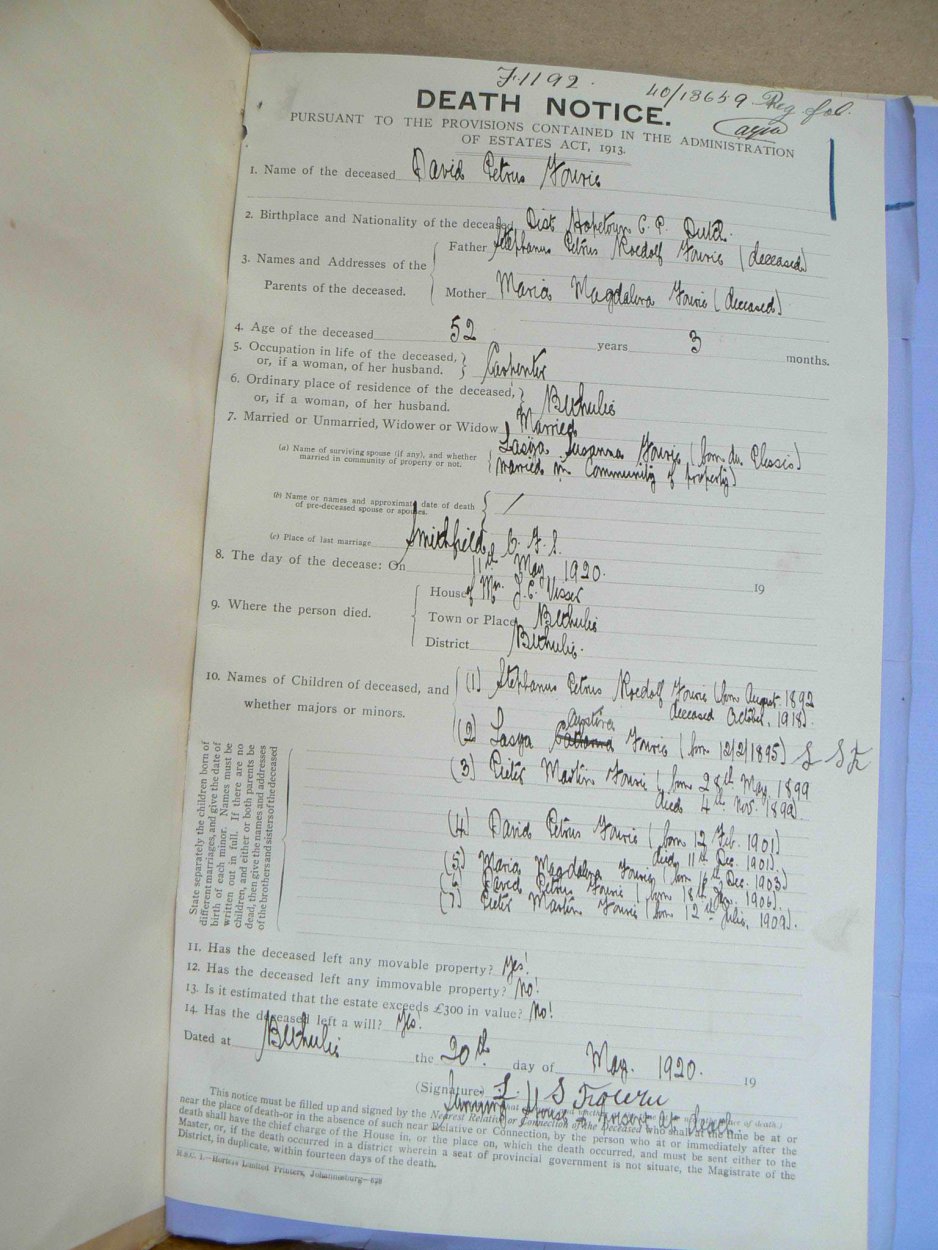 F. 1192.
40/18659
DEATH NOTICE.
PURSUANT TO THE PROVISIONS CONTAINED IN THE ADMINISTRATION
OF ESTATES ACT, 1913.
1. Name of the deceased David Petrus Fourie
2. Birthplace and Nationality of the deceased Dist Hopetown C. P. Dutch.
3. Names and Addresses of the Parents of the deceased.
Father Stephanus Petrus Roedolf Fourie (deceased)
Mother Maria Magdalena Fourie (deceased)
4. Age of the deceased 52 years 3 months.
5. Occupation in life of the deceased, or, if a woman, of her husband. Carpenter
6. Ordinary place of residence of the deceased, or, if a woman, of her husband. Bethulie
7. Married or Unmarried, Widower or Widow Married
(a) Name of surviving spouse (if any), and whether married in community of property or not. Lasya Susanna Fourie (born du Plessis)
married in Community of property)
(b) Name or names and approximate date of death of pre-deceased spouse or spouses. /
(c) Place of last marriage Smithfield, O. F. S.
8. The day of the decease: On 11th May 1920. 19
9. Where the person died.
House of Mr. J. C. Visser
Town or Place Bethulie
District Bethulie.
10. Names of Children of deceased, and whether majors or minors.
(1) Stephanus Petrus Roedolf Fourie (born August 1892
deceased October, 1918).
(2) Lasya Fourie (born 12/2/1895)
(3) Pieter Martin Fourie (born 28th May 1899
died 4th Nov. 1899).
(4) David Petrus Fourie (born 12 Feb. 1901)
died 11th Dec. 1901).
(5) Maria Magdalena Fourie (born 16th Dec. 1903)
David Petrus Fourie (born 18th 1906).
(7) Pieter Martin Fourie (born 12th Julie, 1909).
State separately the children born of
different marriages, and give the date of
birth of each minor. Names must be
written out in full. If there are no
children, and either or both parents be
dead, then give the names and addresses
of the brothers and sisters of the deceased
11. Has the deceased left any movable property? Yes!
12. Has the deceased left any immovable property? No!
13. Is it estimated that the estate exceeds £300 in value? No!
14. Has the deceased left a will? Yes.
Dated at Bethulie the 20th day of May. 1920. 19
(Signature)
This notice must be filled up and signed by the Nearest Relative or Connection of the Deceased who shall at the time be at or
near the place of death—or in the absence of such near Relative or Connection, by the person who at or immediately after the
death shall have the chief charge of the House in, or the place on, which the death occurred, and must be sent either to the
Master, or, if the death occurred in a district wherein a seat of provincial government is not situate, the Magistrate of the
District, in duplicate, within fourteen days of the death.
Hortors Limited Printers, Johannesburg